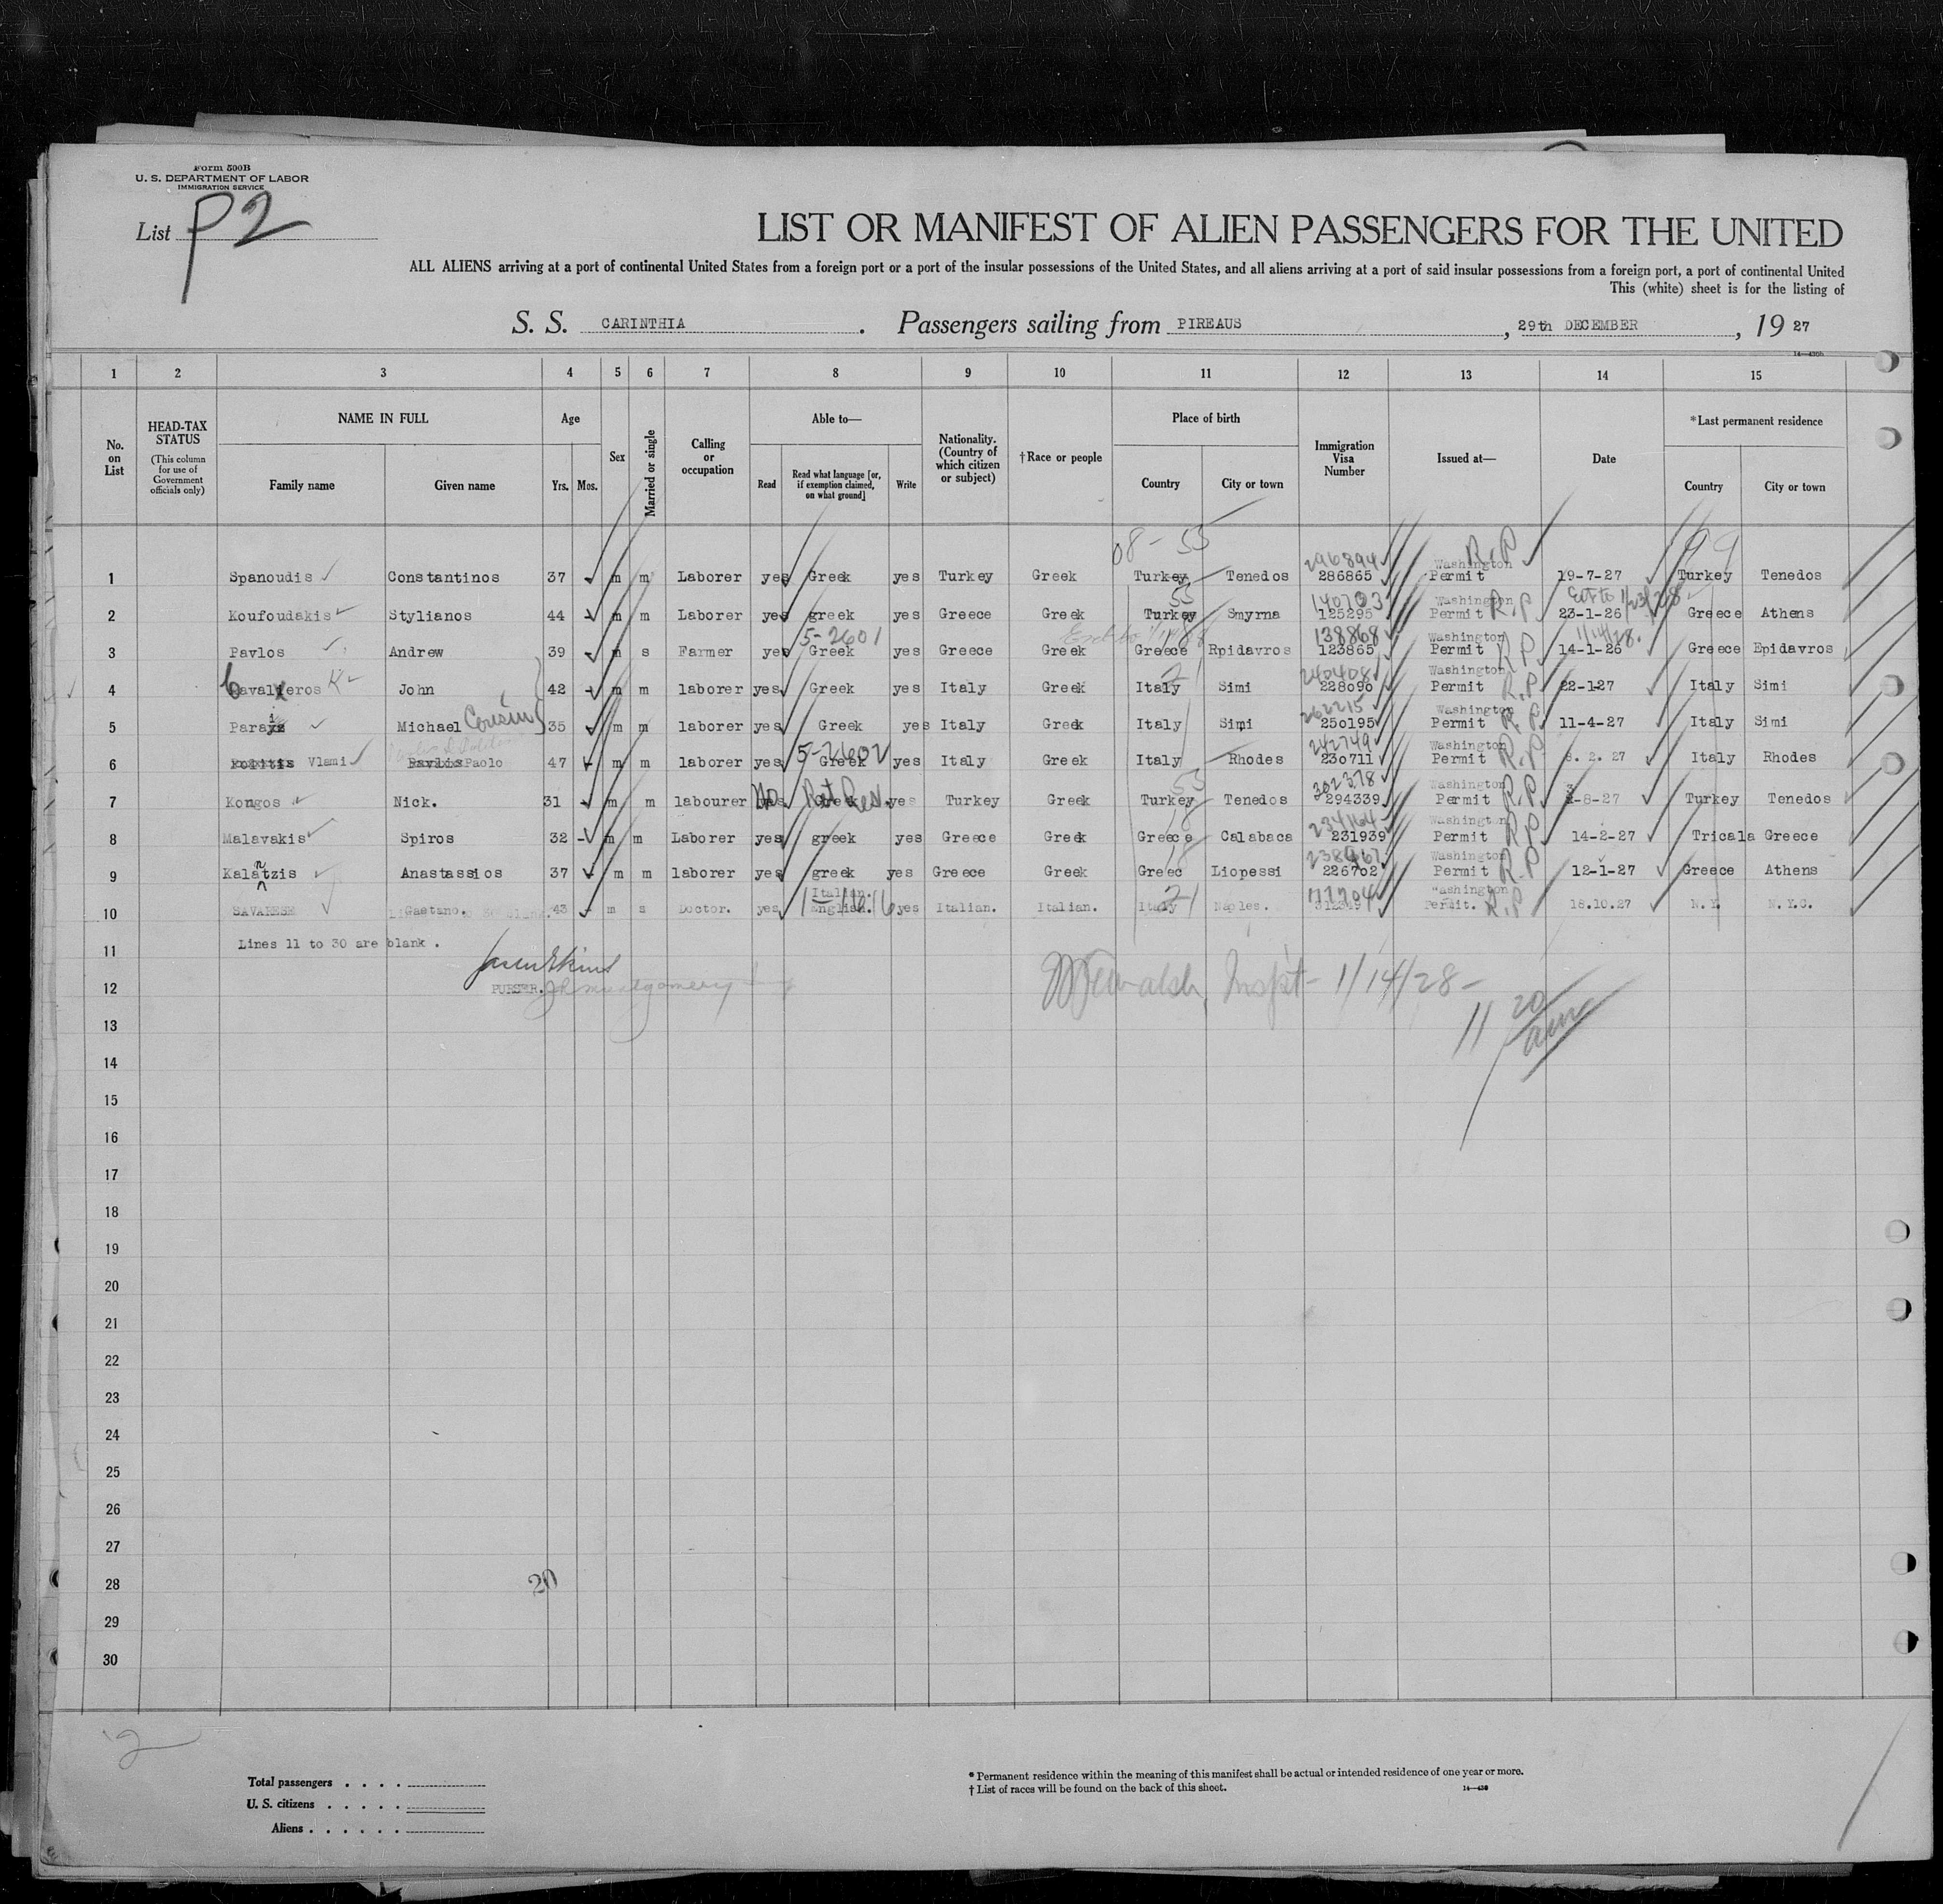 Form 500B
U. S. DEPARTMENT OF LABOR
IMMIGRATION SERVICE
List P2
LIST OR MANIFEST OF ALIEN PASSENGERS FOR THE UNITED
ALL ALIENS arriving at a port of continental United States from a foreign port or a port of the insular possessions of the United States, and all aliens arriving at a port of said insular possessions from a foreign port, a port of continental United
This (white) sheet is for the listing of
S. S. CARINTHIA. Passengers sailing from PIREAUS, 29th DECEMBER, 19 27
1 2 3 4 5 6 7 8 9 10 11 12 13 14 15
No. on List
HEAD-TAX STATUS
(This column for use of Government officials only)
NAME IN FULL
Family name
Given name
Age
Yrs. Mos.
Sex
Married or single
Calling or occupation
Able to—
Read
Read what language [or, if exemption claimed, on what ground]
Write
Nationality. (Country of which citizen or subject)
†Race or people
Place of birth
Country
City or town
Immigration Visa Number
Issued at—
Date
*Last permanent residence
Country
City or town
08-55 99
296894 Washington R.P
1 Spanoudis Constantinos 37 m m Laborer yes Greek yes Turkey Greek Turkey Tenedos 286865 Permit 19-7-27 Turkey Tenedos
55 140703 Washington R.P Ext to 1/23/28
2 Koufoudakis Stylianos 44 m m Laborer yes greek yes Greece Greek Turkey Smyrna 125295 Permit 23-1-26 Greece Athens
5-2601 138868 Washington R.P. 1/14/28.
3 Pavlos Andrew 39 m s Farmer yes Greek yes Greece Greek Greece Rpidavros 123865 Permit 14-1-26 Greece Epidavros
21 240408 Washington R.P.
4 Cavalieros K John 42 m m laborer yes Greek yes Italy Greek Italy Simi 228090 Permit 22-1-27 Italy Simi
262215 Washington R.P.
5 Parais Michael Cousin 35 m m laborer yes Greek yes Italy Greek Italy Simi 250195 Permit 11-4-27 Italy Simi
5-2602 242749 Washington R.P
6 Politis Vlami Pavlos Paolo 47 m m laborer yes Greek yes Italy Greek Italy Rhodes 230711 Permit 8. 2. 27 Italy Rhodes
No Ret Res. 55 302378 Washington R.P.
7 Kongos Nick. 31 m m labourer yes Greek yes Turkey Greek Turkey Tenedos 294339 Permit 3-8-27 Turkey Tenedos
18 234164 Washington R.P
8 Malavakis Spiros 32 m m Laborer yes greek yes Greece Greek Greece Calabaca 231939 Permit 14-2-27 Tricala Greece
n 18 Washington R.P
9 Kalatzis Anastassios 37 m m laborer yes greek yes Greece Greek Greec Liopessi 226702 Permit 12-1-27 Greece Athens
Italian. 21 Washington R.P
10 SAVARESE Gaetano. 43 m s Doctor. yes English. yes Italian. Italian. Italy Naples. Permit. 18.10.27 N.Y. N.Y.C.
11 Lines 11 to 30 are blank .
12 PURSER. J R Montgomery Inspt- 1/14/28-
13 11 20 am
14
15
16
17
18
19
20
21
22
23
24
25
26
27
28
29
30
20
2
Total passengers
U. S. citizens
Aliens
* Permanent residence within the meaning of this manifest shall be actual or intended residence of one year or more.
† List of races will be found on the back of this sheet.
14—430